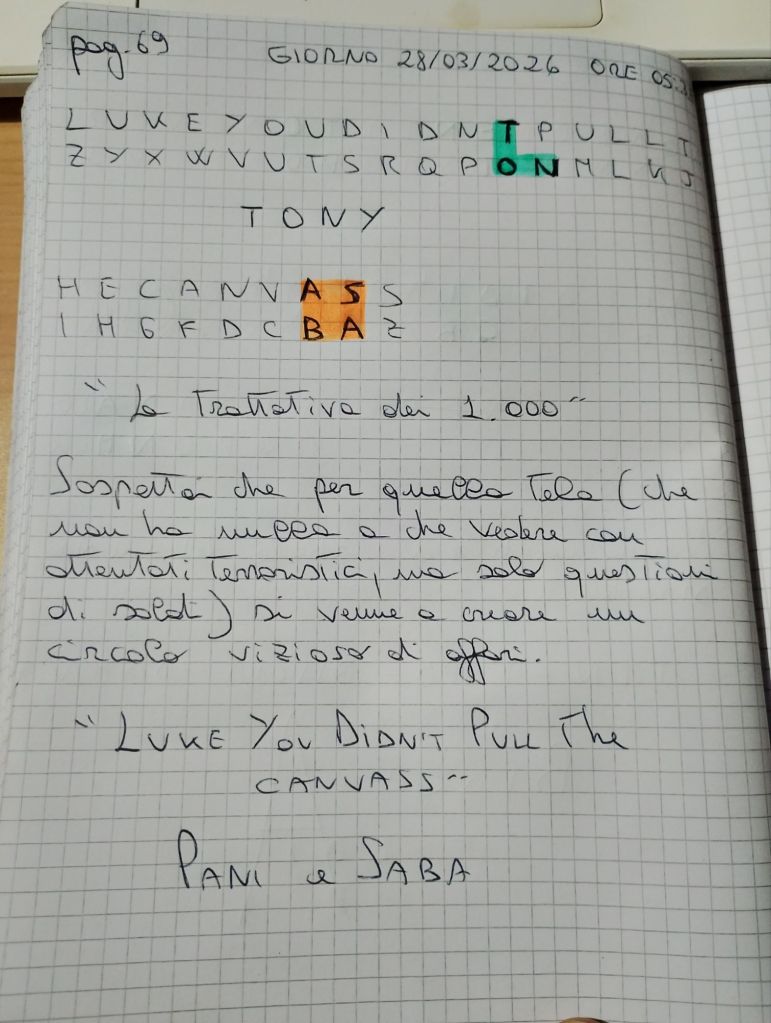 pag. 69 GIORNO 28/03/2026 ORE 05:
L U K E Y O U D I D N T P U L L T
Z Y X W V U T S R Q P O N M L K J
T O N Y
H E C A N V A S S
I H G F D C B A Z
"La Trattativa dei 1.000"
Sospettai che per quella Tela (che
non ha nulla a che vedere con
attentati Terroristici, ma solo questioni
di soldi) si venne a creare un
circolo vizioso di affari.
"LUKE YOU DIDN'T PULL The
CANVASS"
PANI e SABA